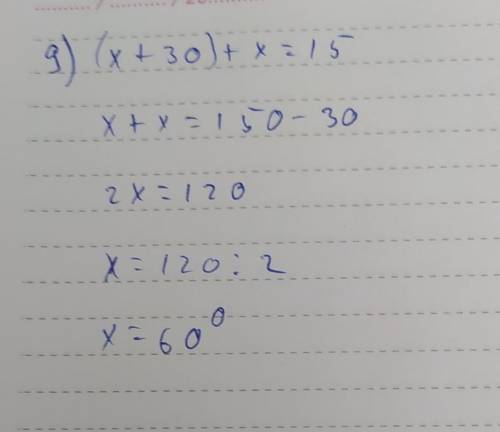 9) (x + 30) + x = 15
x + x = 150 - 30
2x = 120
x = 120 : 2
x = 60⁰